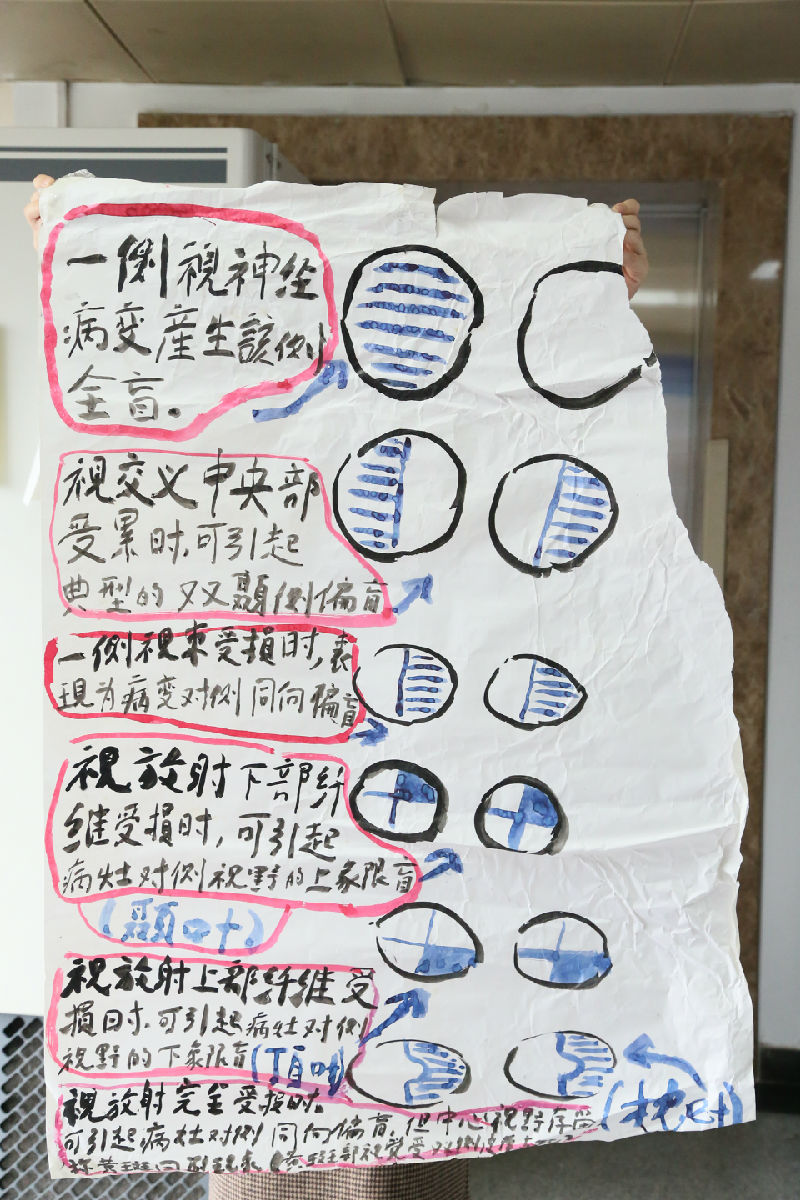 一侧視神经
病变産生該侧
全盲。
視交义中央部
受累时,可引起
典型的双颞侧偏盲
一侧視束受損时,表
現为病变对侧同向偏盲
視放射下部纤
维受損时,可引起
病灶对侧視野的上象限盲
(颞叶)
視放射上部纤维受
損时.可引起病灶对侧
視野的下象限盲(顶叶)
視放射完全受損时.
可引起病灶对侧同向偏盲,但中心視野存
(枕叶)